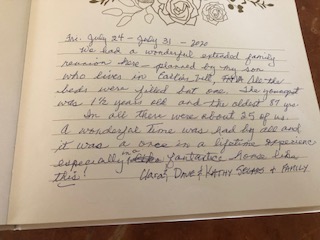 Fri. July 24 - July 31 - 2020
We had a wonderful extended family
reunion here - planned by my son
who lives in Castle All the
beds were filled but one. The youngest
was 1½ years old and the oldest 87 yrs.
In all there were about 25 of us.
A wonderful time was had by all and
it was a once in a lifetime experience
especially in a fantastic house like
this! Clara, Dave & Kathy & Family